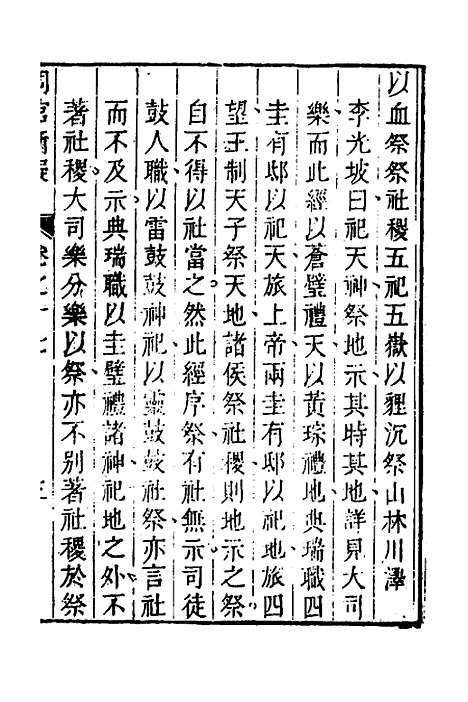 以血祭祭社稷五祀五嶽以貍沉祭山林川澤
李光坡曰祀天神祭地示其時其地詳見大司
樂而此經以蒼璧禮天以黃琮禮地典瑞職四
圭有邸以祀天旅上帝兩圭有邸以祀地旅四
望王制天子祭天地諸侯祭社稷則地示之祭
自不得以社當之然此經序祭有社無示司徒
鼓人職以雷鼓鼓神祀以靈鼓鼓社祭亦言社
而不及示典瑞職以圭璧禮諸神祀地之外不
著社稷大司樂分樂以祭亦不别著社稷於祭
周官 卷之十七 三